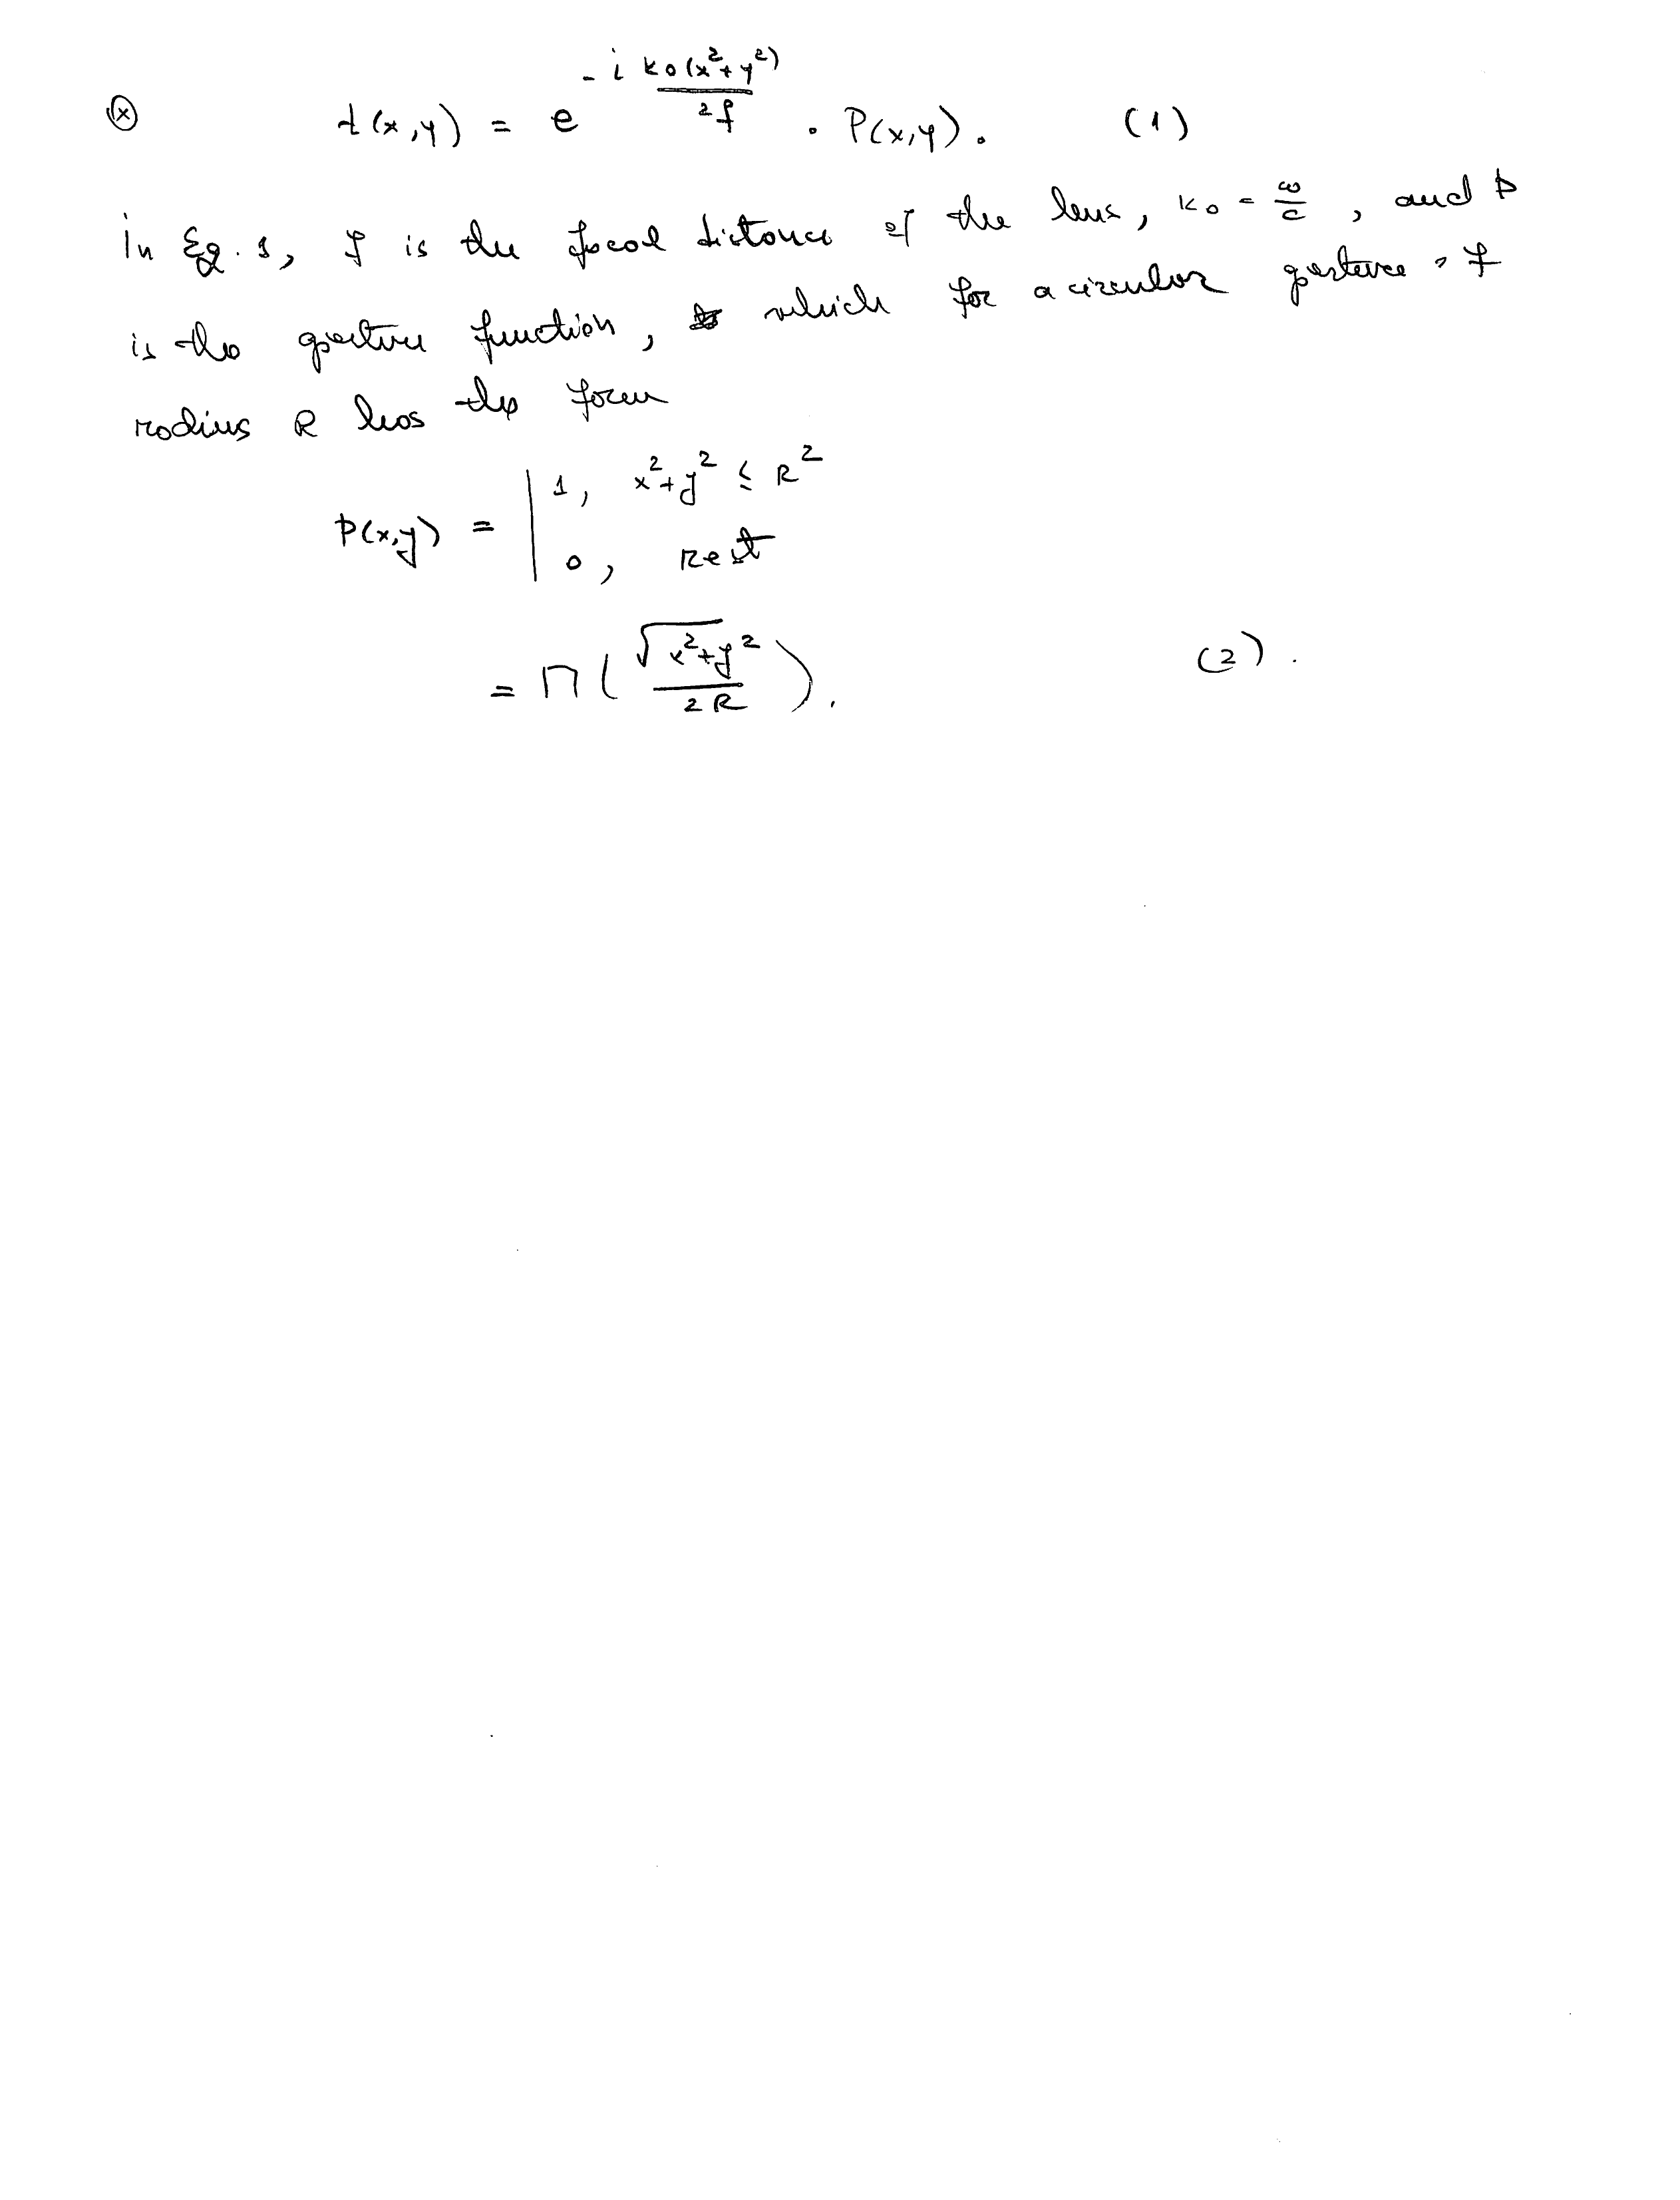 ⓧ t(x,y) = e^{-i k₀(x²+y²)/2f} · P(x,y). (1)
In Eq. 1, f is the focal distance of the lens, k₀ = ω/c, and P
is the aperture function, which for a circular aperture of
radius R has the form
P(x,y) = | 1, x²+y² ≤ R²
0, rest
= Π(√(x²+y²)/2R). (2).